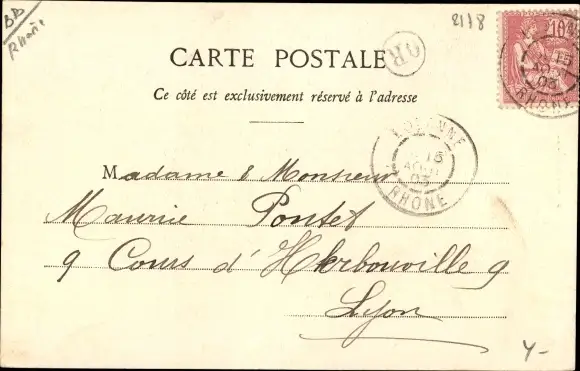 BB
Rhône
2118
CARTE POSTALE
OR
Ce côté est exclusivement réservé à l'adresse
10
LOZANNE
15
AOUT
03
RHÔNE
15
03
RHÔNE
Madame & Monsieur
Maurice Pontet
9 Cours d'Herbouville 9
Lyon
4-